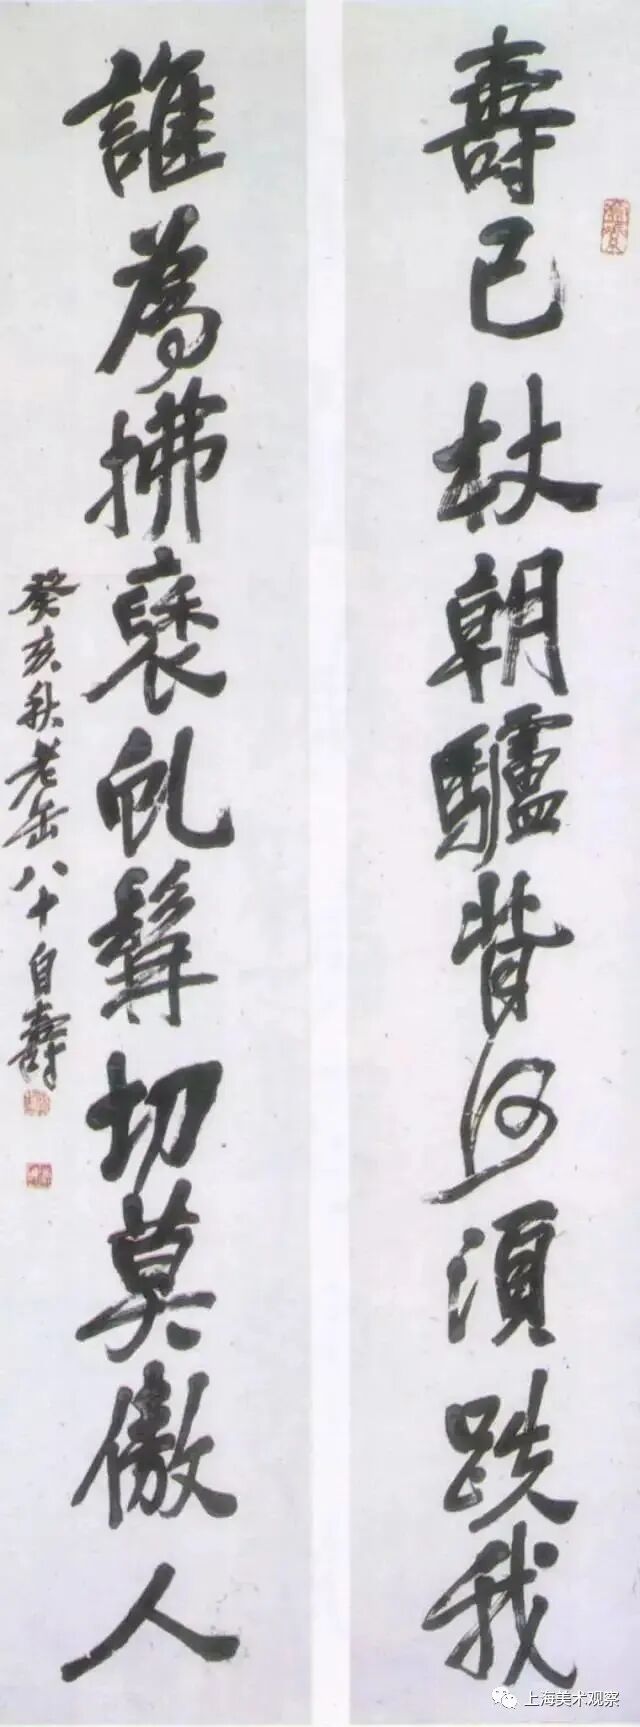 壽已杖朝驢背何須跌我
誰為拂褎虬髯切莫傲人
癸亥秋老缶八十自壽
上海美术观察